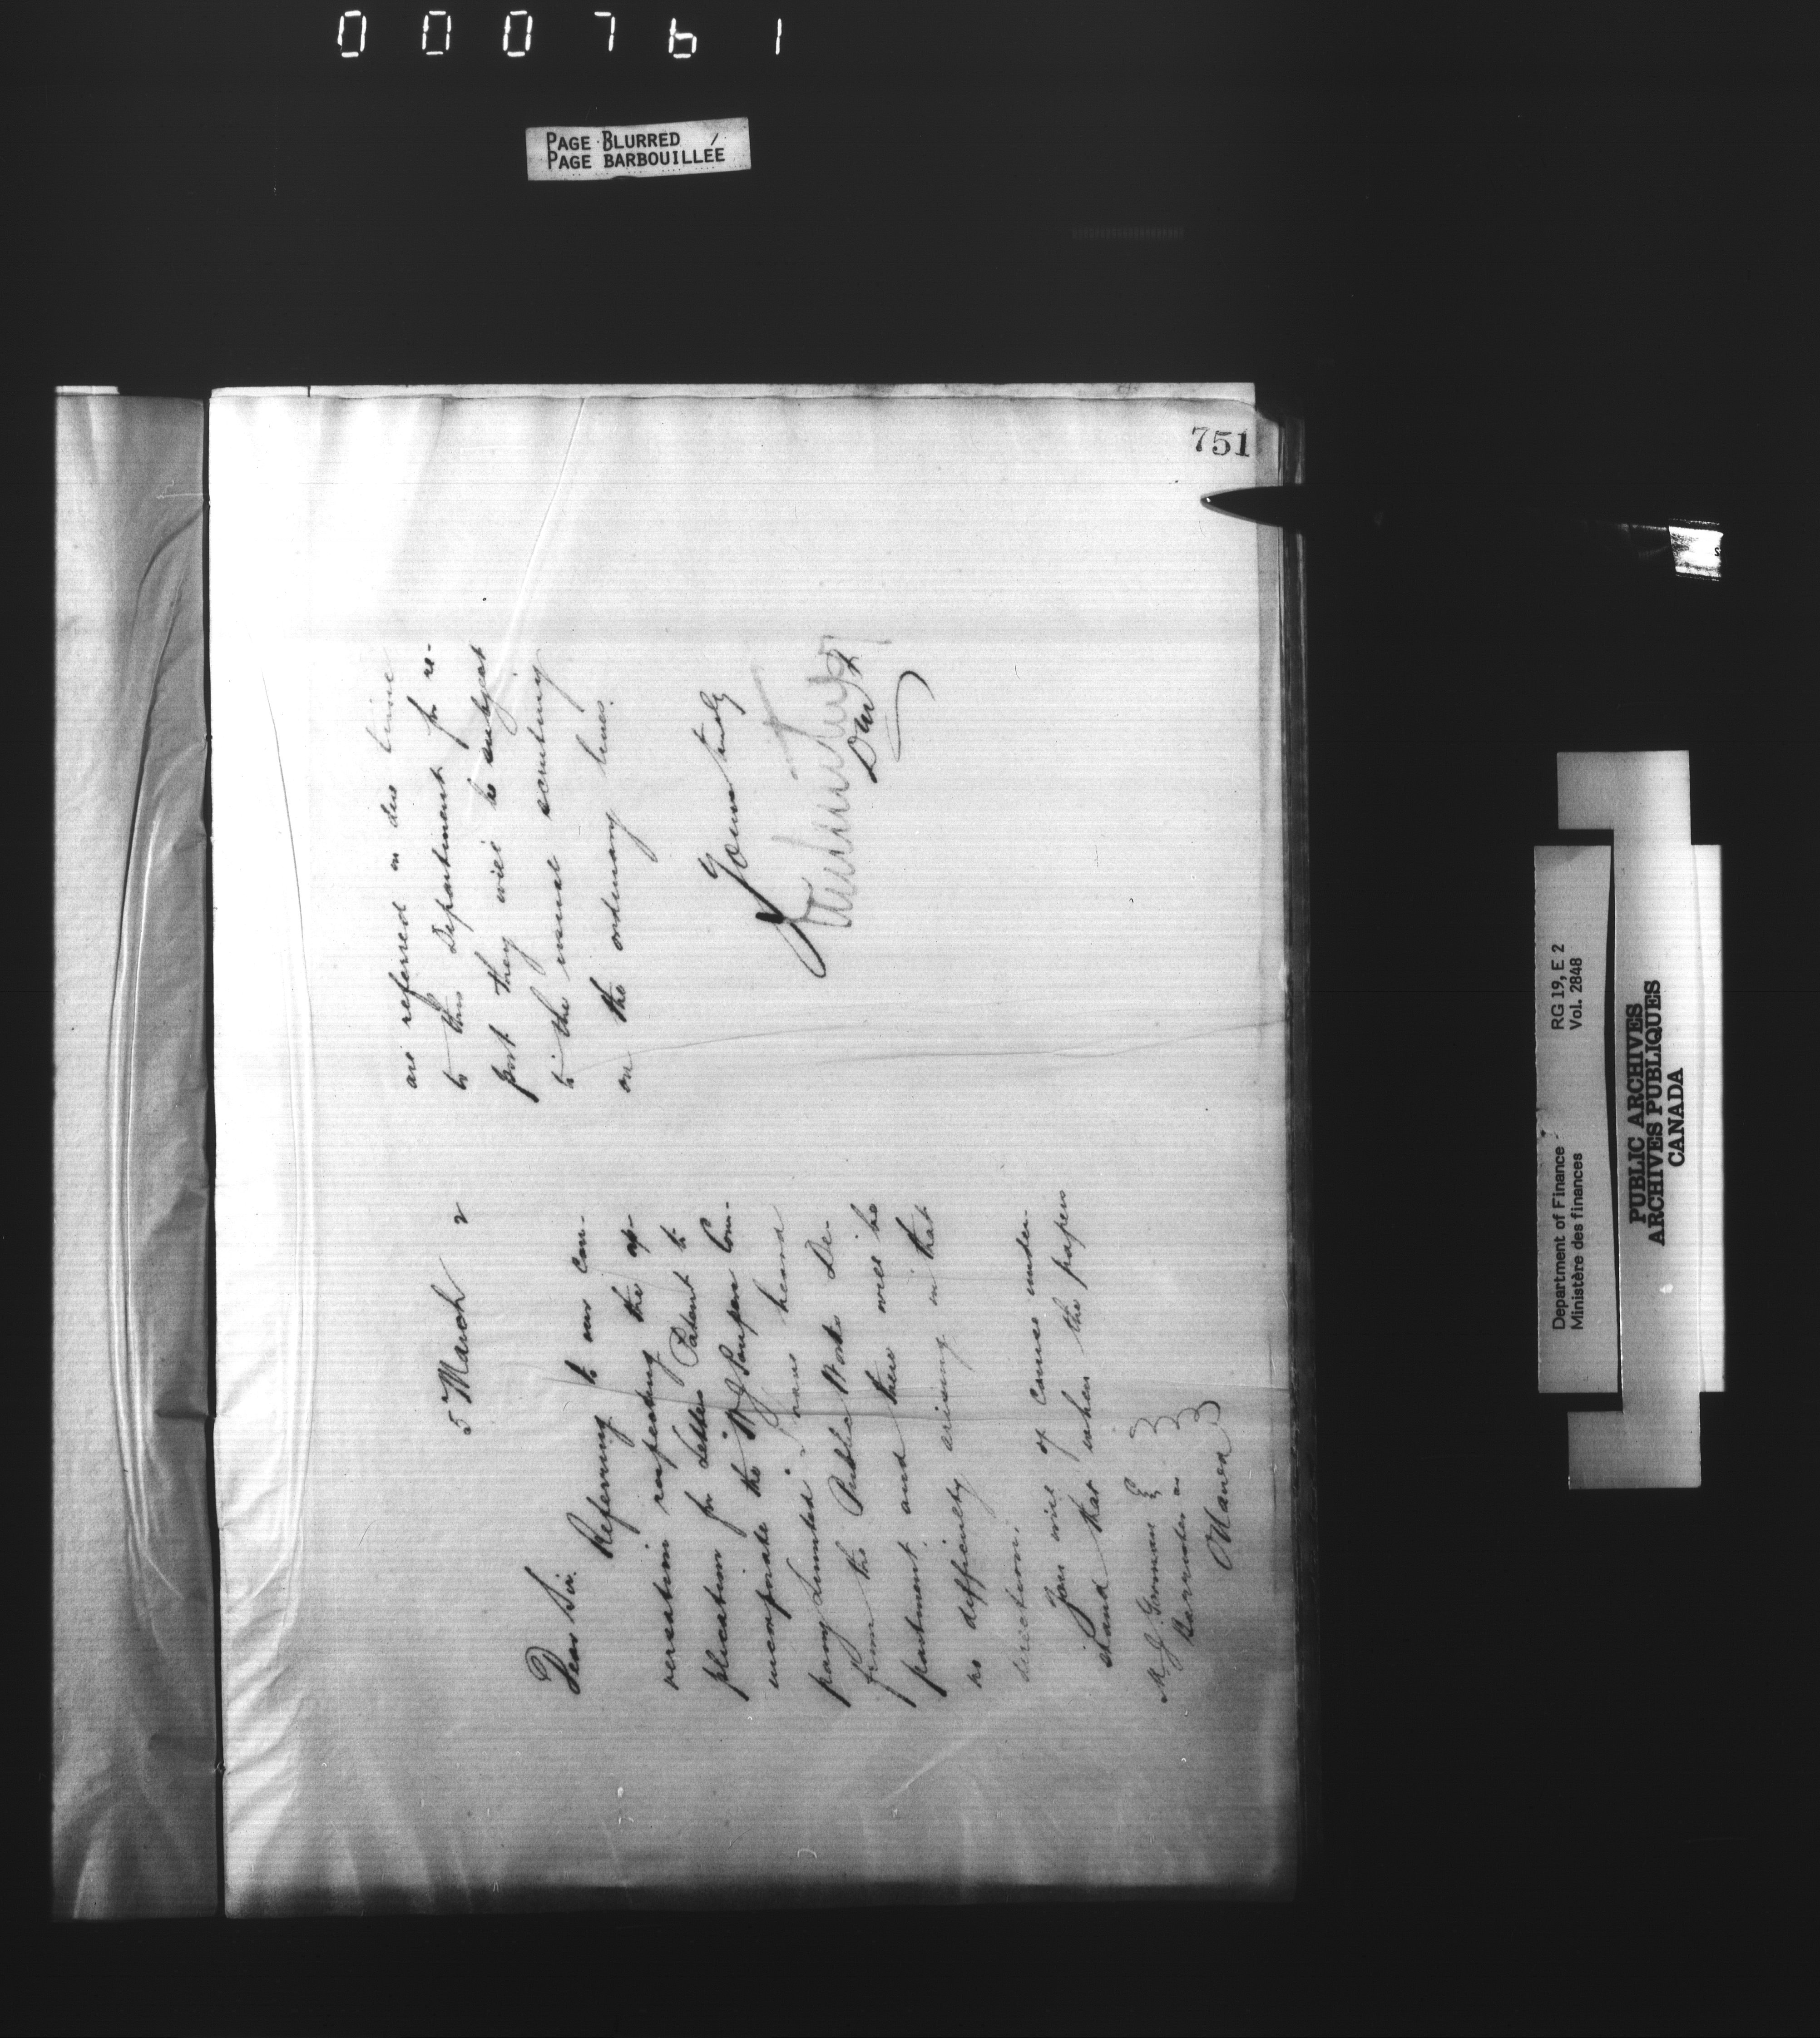 000761
PAGE BLURRED /
PAGE BARBOUILLEE
751
5 March 2
Dear Sir.
Referring to our con-
versation respecting the ap-
plication for Letters Patent to
incorporate the W J Company Com-
pany Limited I have heard
from the Public Works De-
partment. and there will be
no difficulty arising in that
direction.
You will of course under-
stand that when the papers
M. J. Gorman
Barrister &c
Ottawa
are referred in due time
to this Department for re-
port they will be subject
to the usual scrutiny
on the ordinary lines.
Yours truly
DMF
Department of Finance
Ministère des finances
RG 19, E 2
Vol. 2848
PUBLIC ARCHIVES
ARCHIVES PUBLIQUES
CANADA